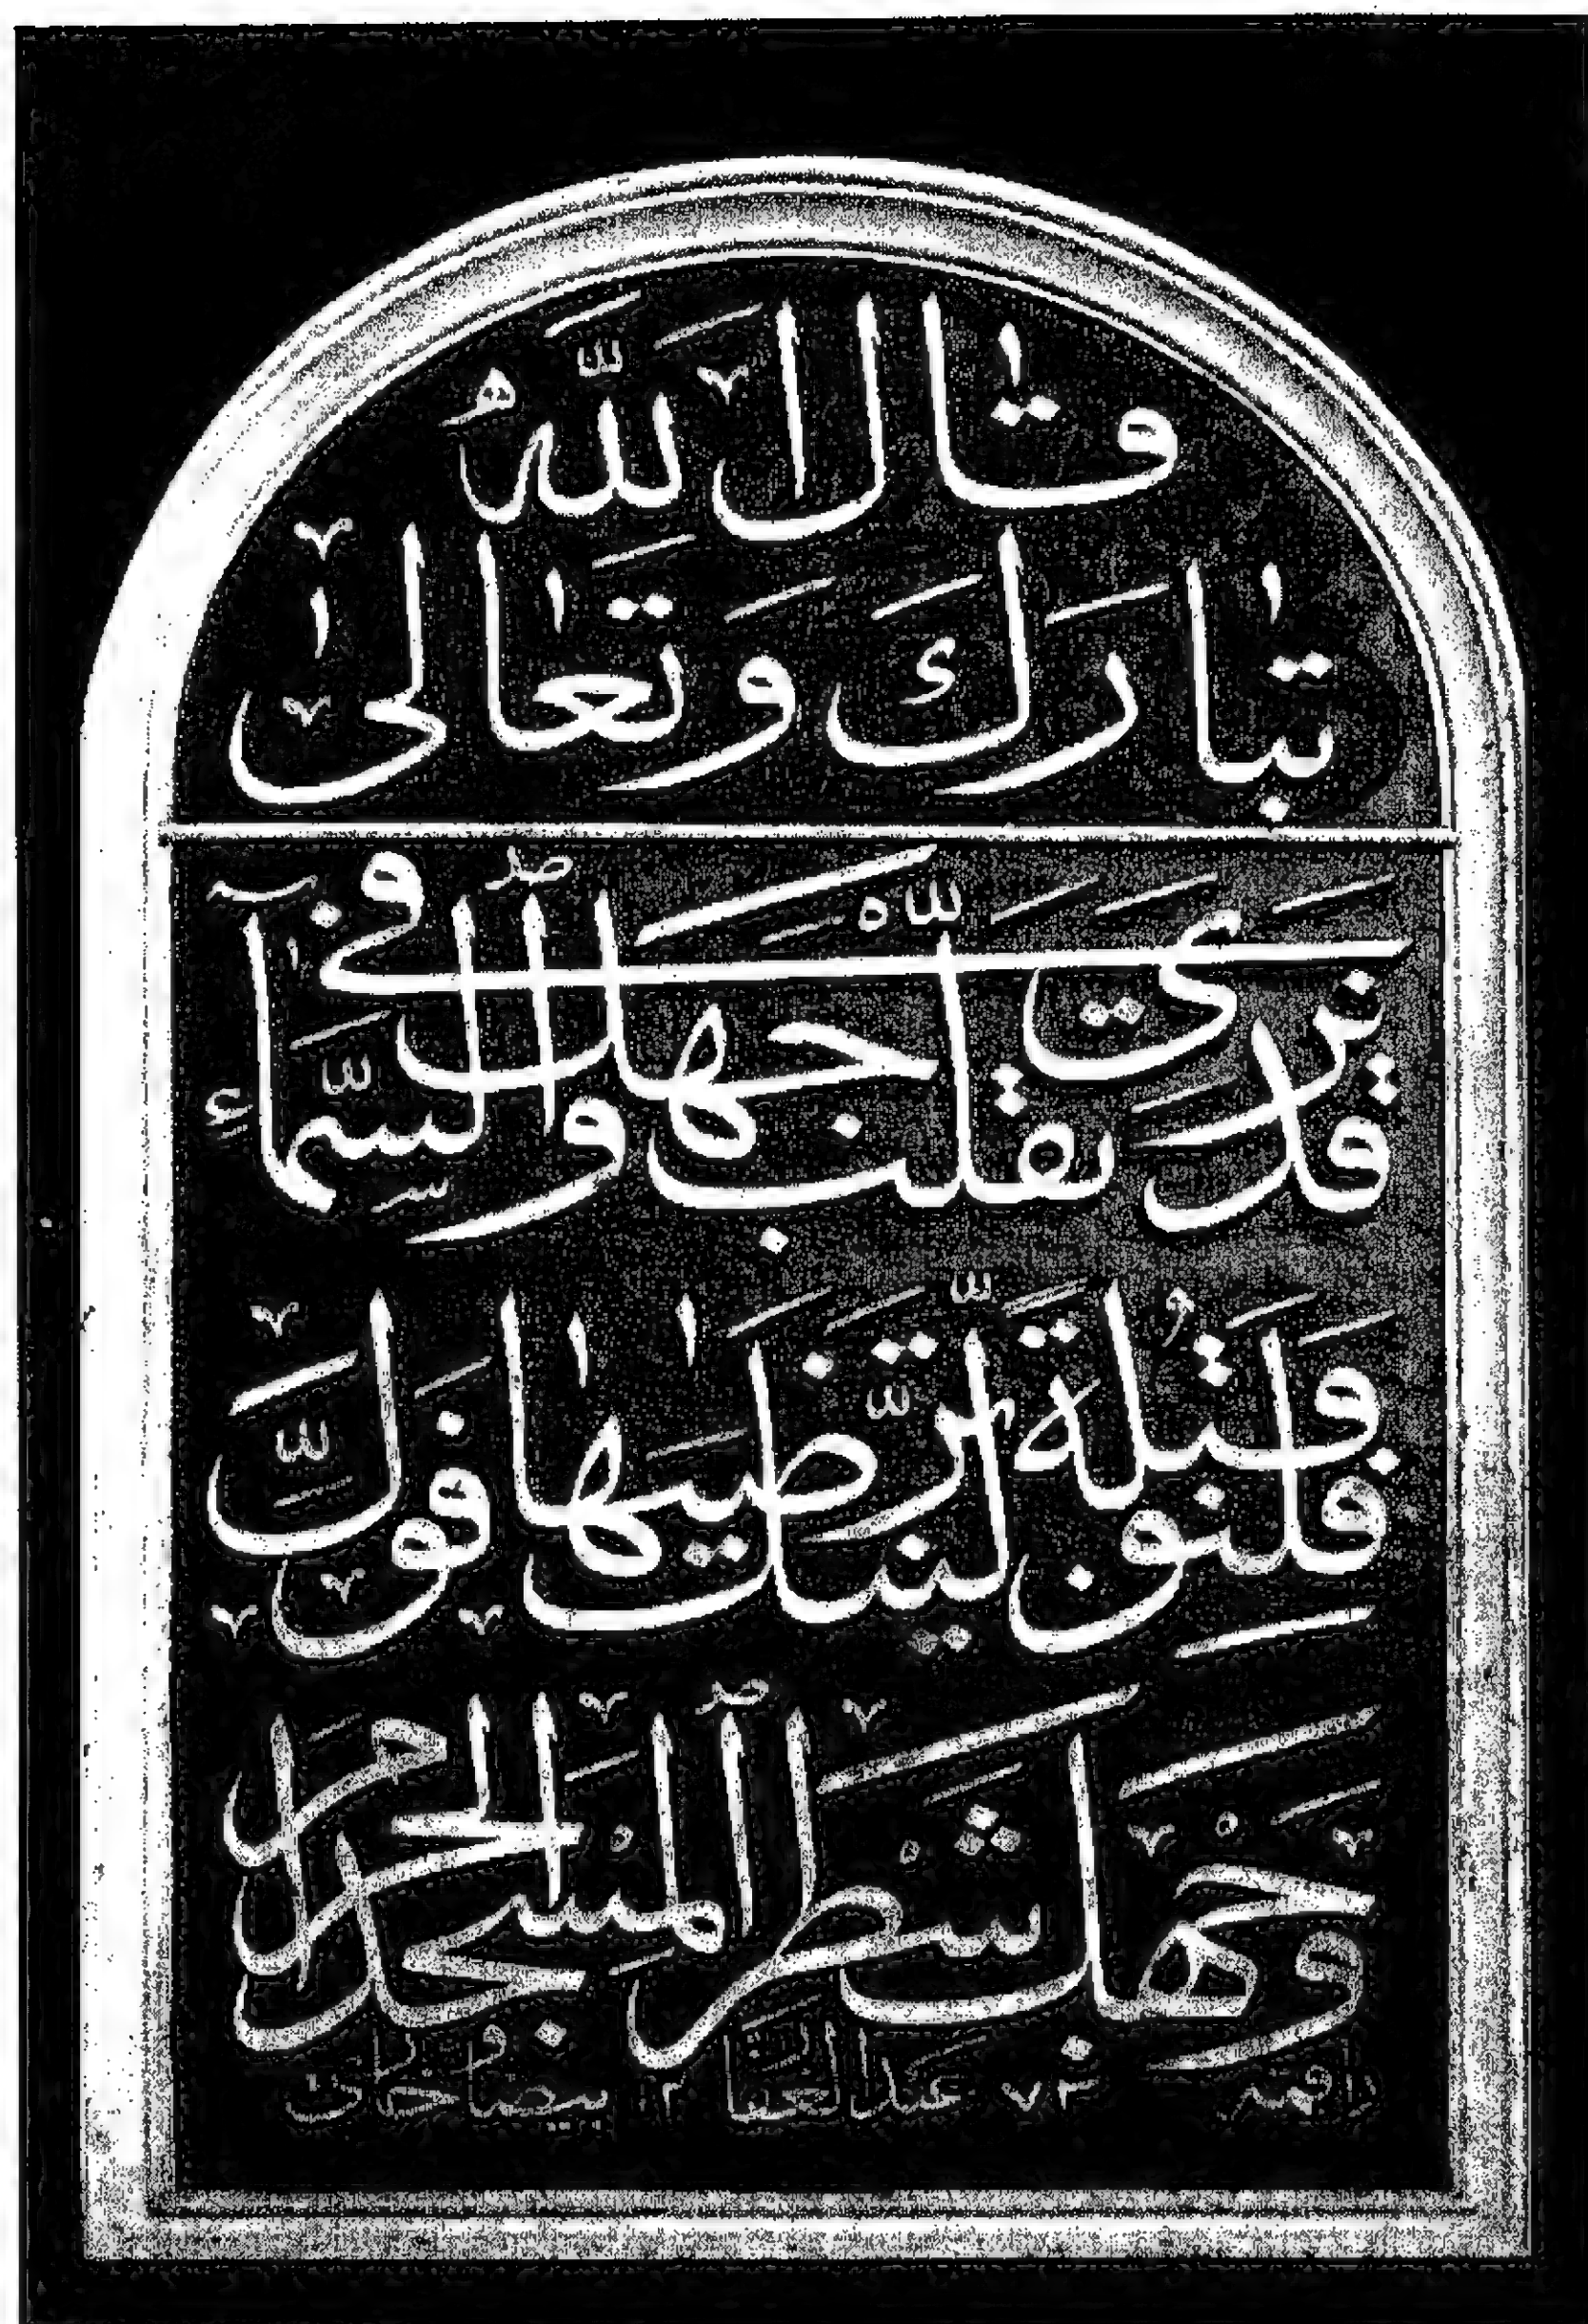 قال اللّٰهُ
تبارك وتعالىٰ
قد نرى تقلّب وجهك فى السّمآء
فلنولينّك قبلة ترضيها فولّ
وجهك شطر المسجد الحرام